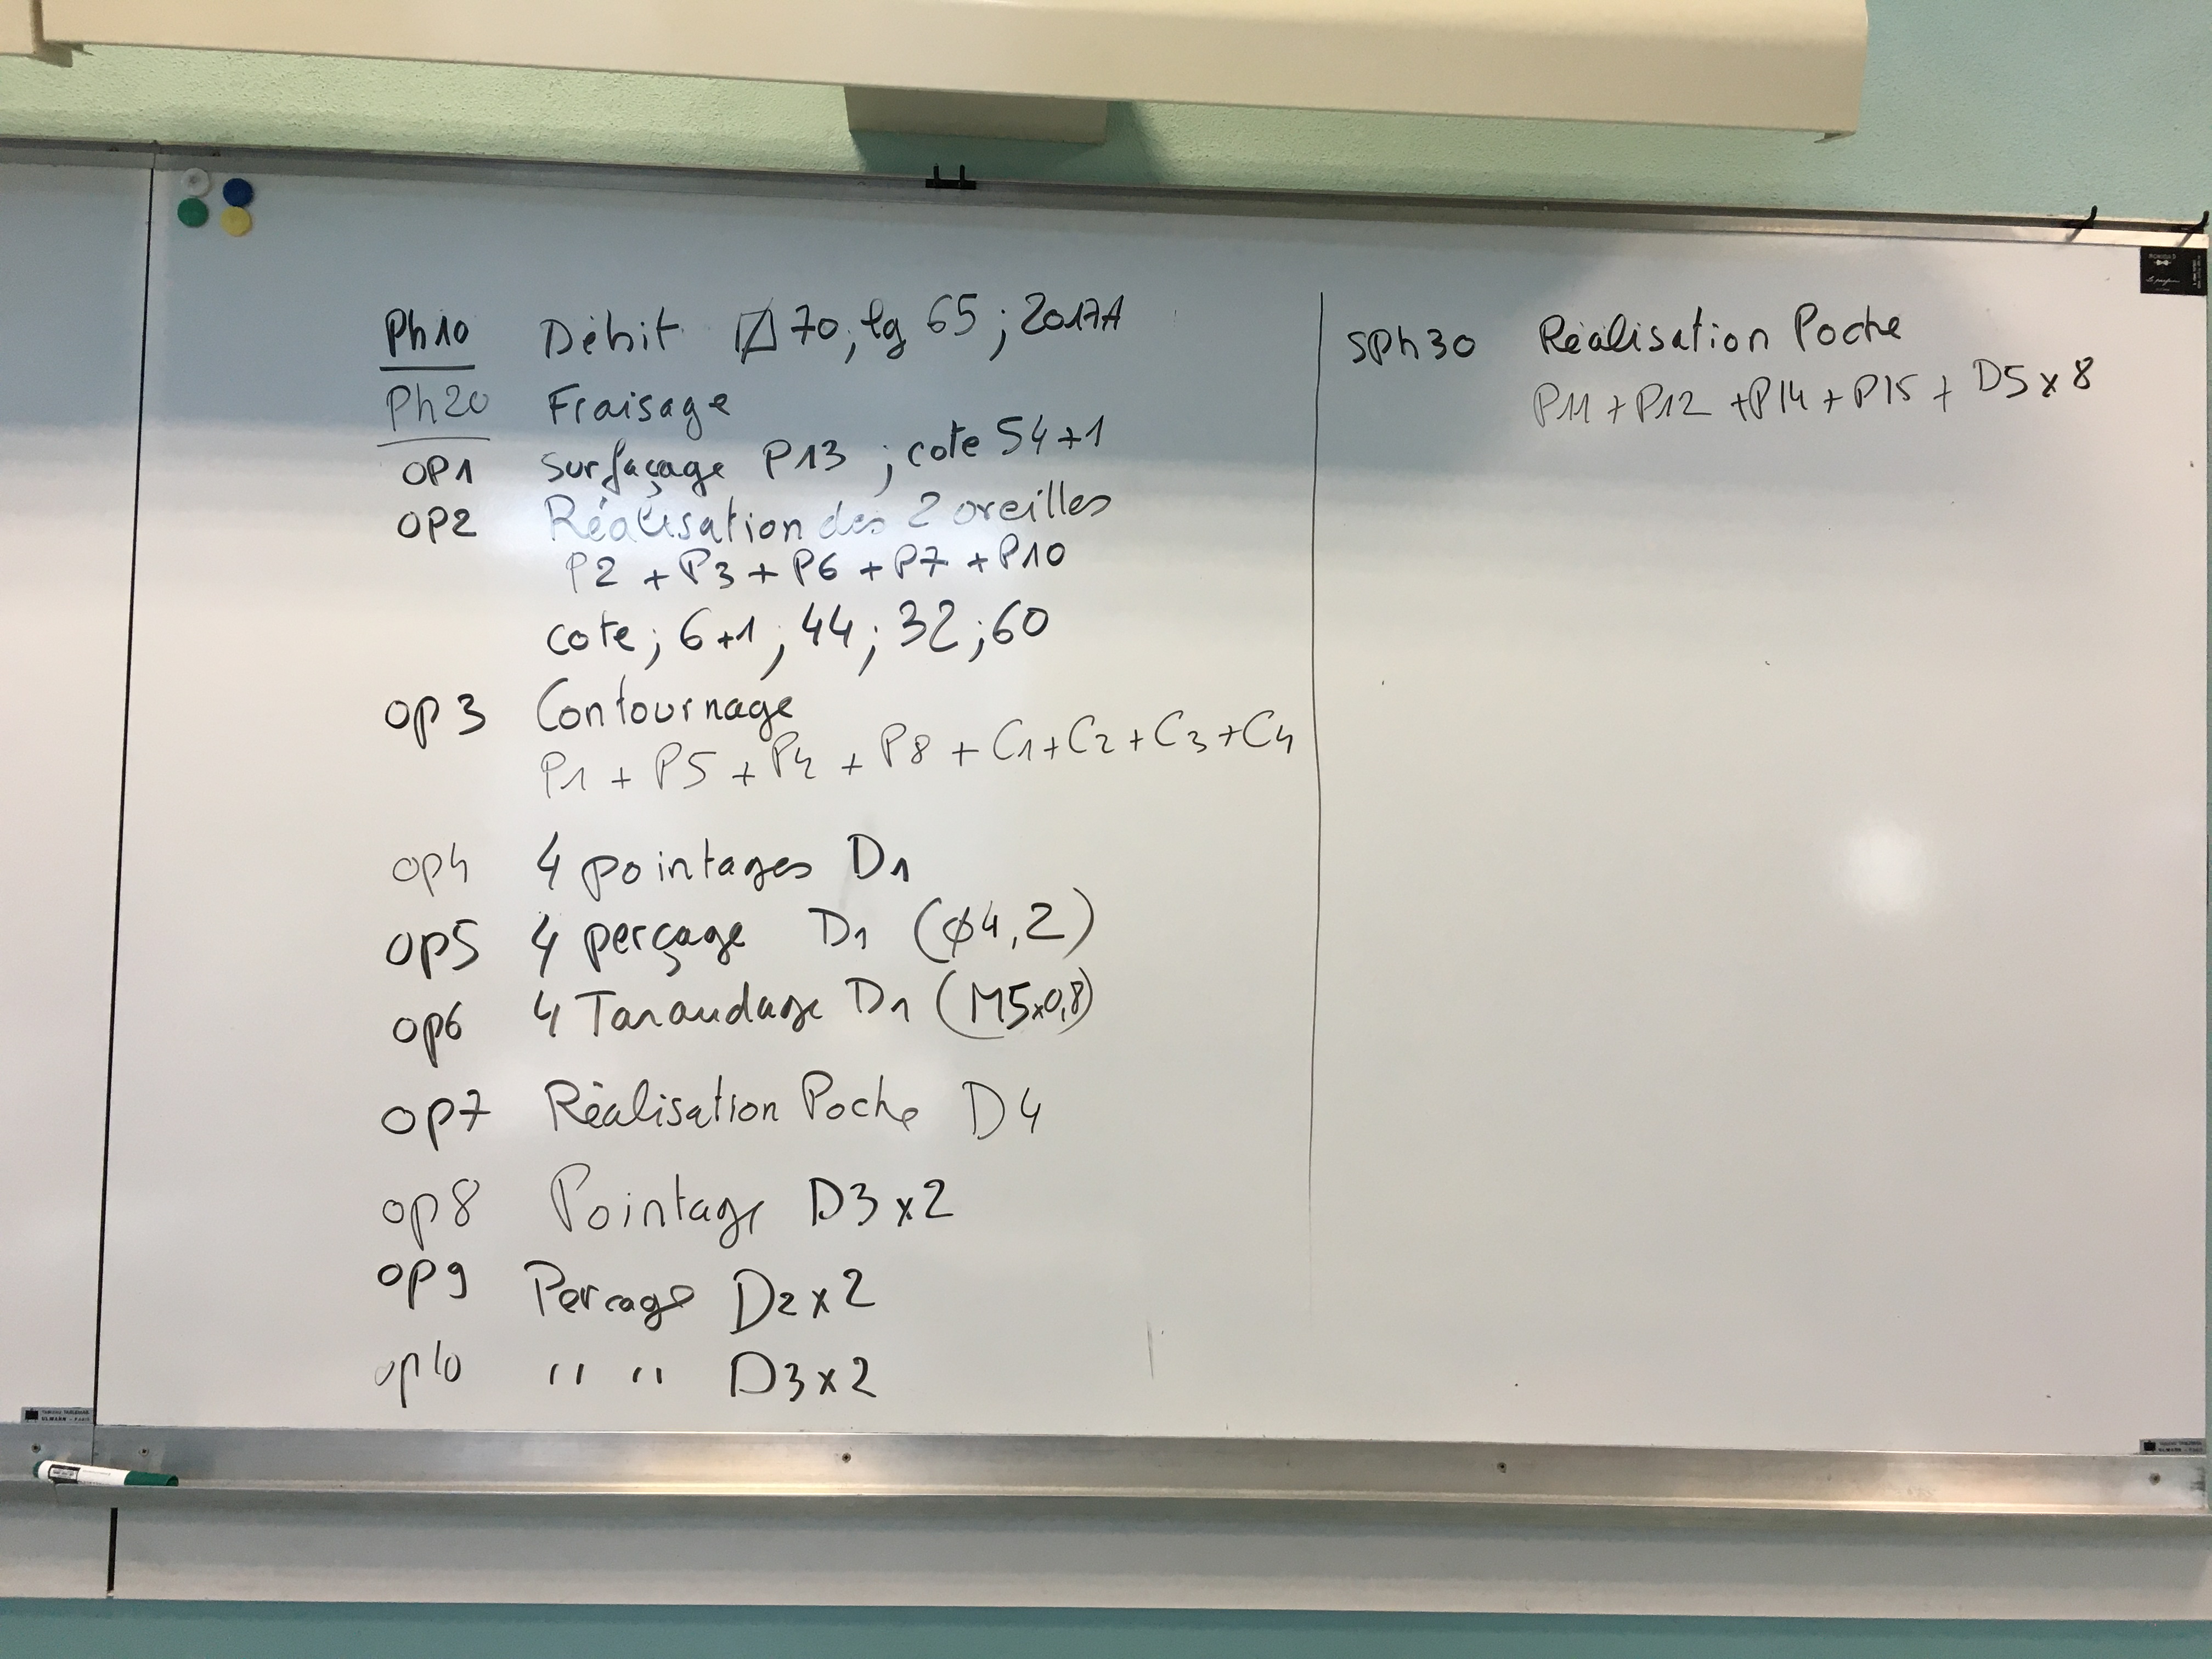 Ph10 Débit ⌷ 70, lg 65 ; 2017A
Ph20 Fraisage
OP1 surfaçage P13 ; cote 54+1
OP2 Réalisation des 2 oreilles
P2 + P3 + P6 + P7 + P10
cote ; 6+1 ; 44 ; 32 ; 60
op3 Contournage
P1 + P5 + P4 + P8 + C1 + C2 + C3 + C4
op4 4 pointages D1
op5 4 perçage D1 (ø4,2)
op6 4 Taraudage D1 (M5x0,8)
op7 Réalisation Poche D4
op8 Pointage D3 x 2
op9 Percage D2 x 2
op10 " " D3 x 2
SPh30 Réalisation Poche
P11 + P12 + P14 + P15 + D5 x 8